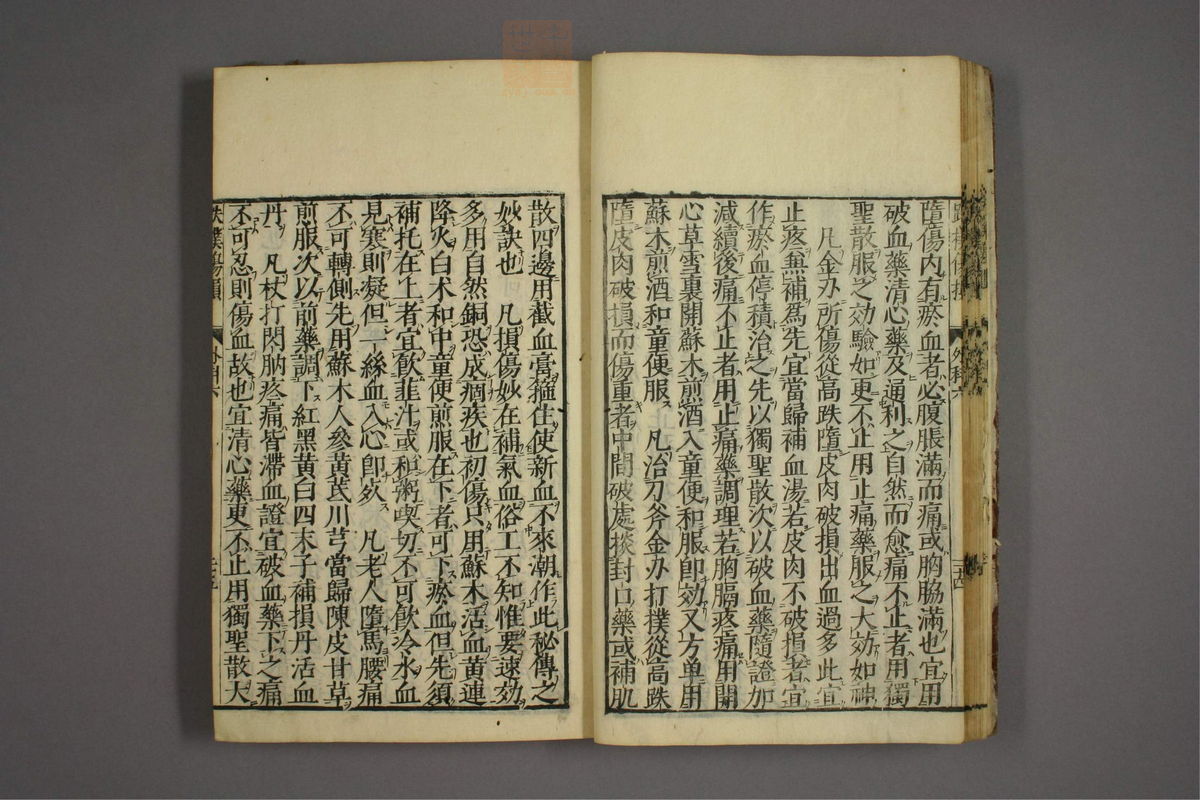 墮傷内有瘀血者必腹脹滿而痛或胸脇滿也宜用
破血藥清心藥及通利之自然而愈痛不止者用獨
聖散服之効驗如更不止用止痛藥服之大効如神
凡金刅所傷從高跌墮皮肉破損出血過多此宜
止疼兼補爲先宜當歸補血湯若皮肉不破損者宜
作瘀血停積治之先以獨聖散次以破血藥隨證加
減續後痛不止者用止痛藥調理若胸膈疼痛用開
心草雪裏開蘇木煎酒入童便和服卽効又方单用
蘇木煎酒和童便服 凡治刀斧金刅打撲從高跌
墮皮肉破損而傷重者中間破處掞對口藥或補肌
散四邊用截血膏箍住使新血不來潮作此秘傳之
妙訣也 凡損傷妙在補氣血俗工不知惟要速効
多用自然銅恐成痼疾也初傷只用蘇木活血黄連
降火白术和中童便煎服在下者可下瘀血但先須
補托在上者宜飲韮汁或稙粥喫切不可飲冷水血
見寒則凝但一絲血入心卽欬 凡老人墮馬腰痛
不可轉側先用蘇木人參黄芪川芎當歸陳皮甘草
煎服次以前藥調下紅黑黄白四末子補損丹活血
丹 凡杖打閃肭疼痛皆滯血證宜破血藥下之痛
不可忍則傷血故也宜清心藥更不止用獨聖散大